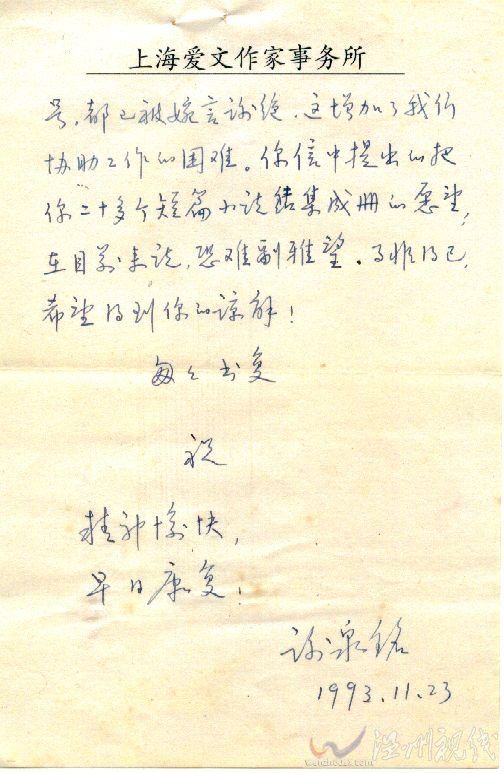 上海爱文作家事务所
号，都已被婉言谢绝，这增加了我们
协助工作的困难。你信中提出的把
你二十多个短篇小说结集成册的愿望，
在目前来说，恐难副雅望。事非得已，
希望得到你的谅解！
匆々书复
祝
精神愉快，
早日康复！
谢泉铭
1993.11.23
温州视线
wenzhousx.com